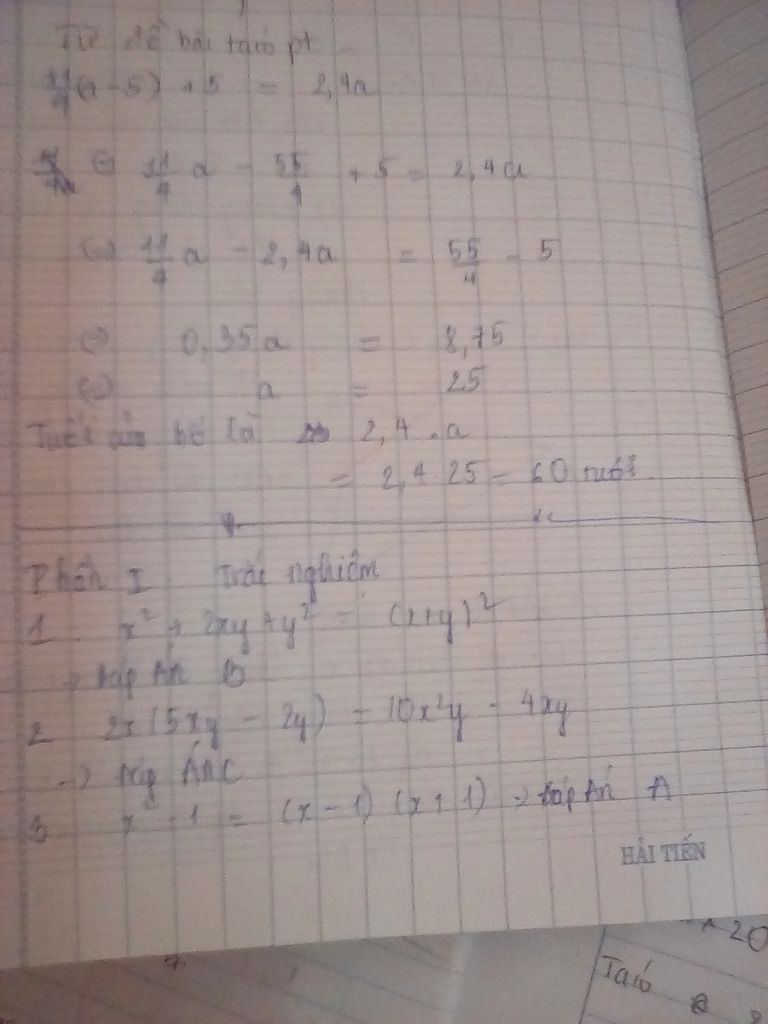 Từ đề bài ta có pt
11/4 (a - 5) + 5 = 2,4a
(=) 11/4 a - 55/4 + 5 = 2,4a
(=) 11/4 a - 2,4a = 55/4 - 5
(=) 0,35a = 8,75
(=) a = 25
Tuổi của bố là 2,4 . a
= 2,4 . 25 = 60 tuổi
Phần I Trắc nghiệm
1 x² + 2xy + y² = (x+y)²
→ Đáp Án B
2 2x(5xy - 2y) = 10x²y - 4xy
→ Đáp Án C
3 x² - 1 = (x - 1) (x + 1) → Đáp Án A
HẢI TIẾN
20
Ta có